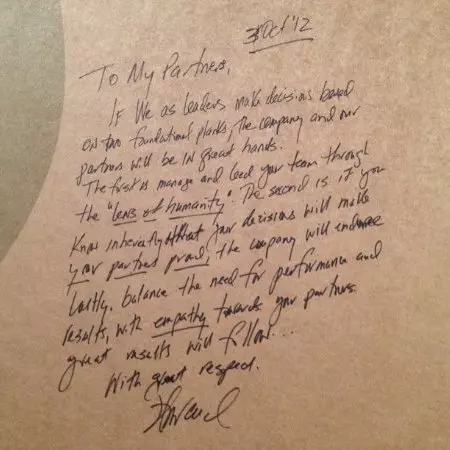 3 Oct '12
To My Partners,
If We as leaders make decisions based
on two foundational planks, The company and our
partners will be in great hands.
The first is manage and lead your team through
the "lens of humanity". The second is if you
know inherently that your decisions will make
your partners proud, the company will endure
Lastly, balance the need for performance and
results, with empathy towards your partners
great results will follow...
With great respect.
Howard